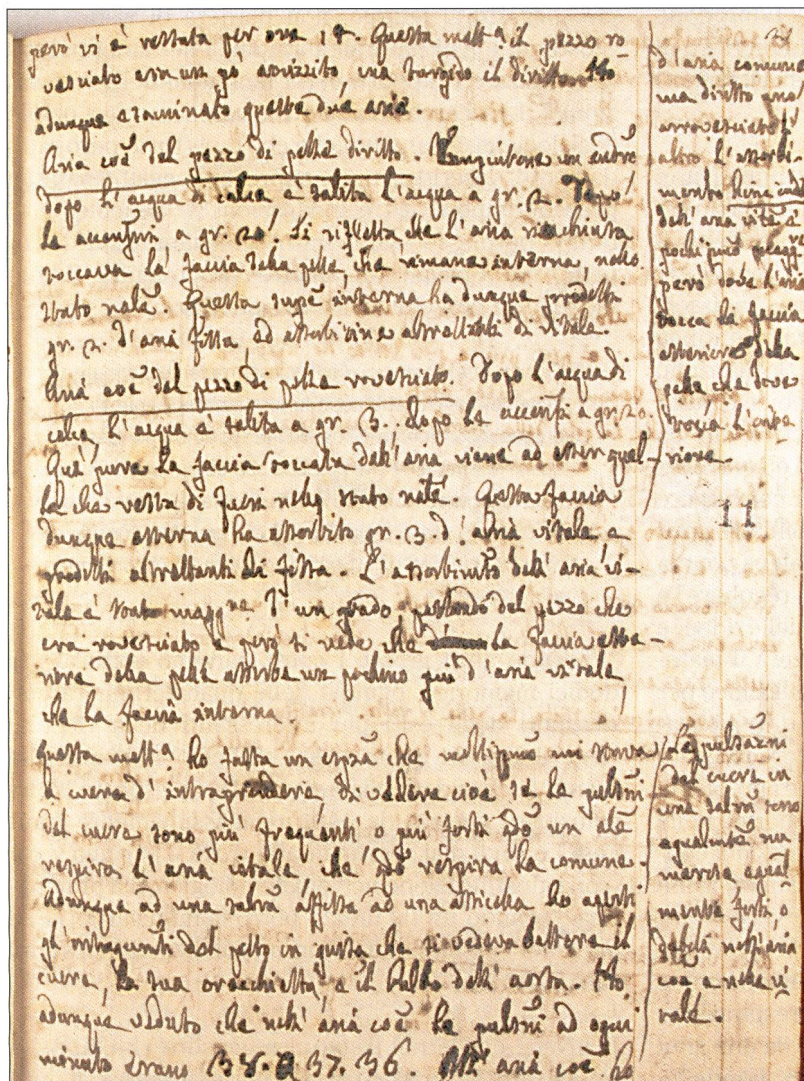 però vi è restata per ore 18. Questa matt.ª il pezzo ro-
vesciato era un pò avvizzito, ma turgido il diritto. Ho
adunque esaminato queste due arie.
Aria coẽ del pezzo di pelle diritto.
dopo l'acqua di calce è salita l'acqua a gr. 2. Dopo
la accensiõi a gr. 20. Si rifletta che l'aria rinchiusa
toccava la faccia della pelle, che rimane interna, nello
stato natẽ. Questa supẽ interna ha dunque prodotti
gr. 2. d'aria fissa, ed assorbitine altrettanti di vitale.
Aria coẽ del pezzo di pelle rovesciato. Dopo l'acqua di
calce, l'acqua è salita a gr. 3. dopo le accensi a gr. 20.
Quì pure la faccia toccata dall'aria viene ad esser quel-
la che resta di fuori nello stato natẽ. Questa faccia
dunque esterna ha assorbito gr. 3. d'aria vitale e
prodotti altrettanti di fissa. L'assorbimẽto dell'aria vi-
tale è stato magg.re d'un grado, parlando del pezzo che
era rovesciato e però si vede, che la faccia este-
riore della pelle assorbe un pochino più d'aria vitale
che la faccia interna.
Questa matt.ª ho fatta un espẽa che moltissimo mi stava
a cuore d'intraprendere, di vedere cioè se le pulsñi
del cuore sono più frequenti o più forti qdõ un alẽ
respira l'aria vitale, che qdõ respira la comune.
Adunque ad una salrã affissa ad una assicella ho aperti
gl'integumẽti del petto in guisa che si vedeva battere il
cuore, la sua orecchietta e il bulbo dell'aorta. Ho
adunque veduto che nell'aria coẽ le pulsñi ad ogni
minuto erano 38. 37. 36. Nell'aria coẽ ho
d'aria comune
ma diritto uno
arrovesciato l'
altro l'assorbi-
mento
dell'aria vitẽ è
pochissimõ magg.re
però dove l'aria
tocca la faccia
esteriore della
pelle che dove
tocca l'inte-
riore.
11
Le pulsazni
del cuore in
una salrã sono
egualmtẽ nu
merose egual
mente forti, o
deboli nell'aria
coẽ e nella vi
tale.